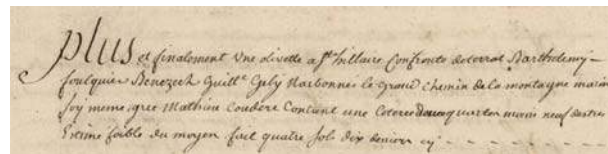 plus et finalement une olivette a St hillaire confronte deterral Barthelemy
foulquier Benezech Guille Gely Narbonnes le grand chemin de la montagne marin
soy meme grec Mathieu Coudere contient une
Estime foible du moyen fait quatre sols dix deniers cy